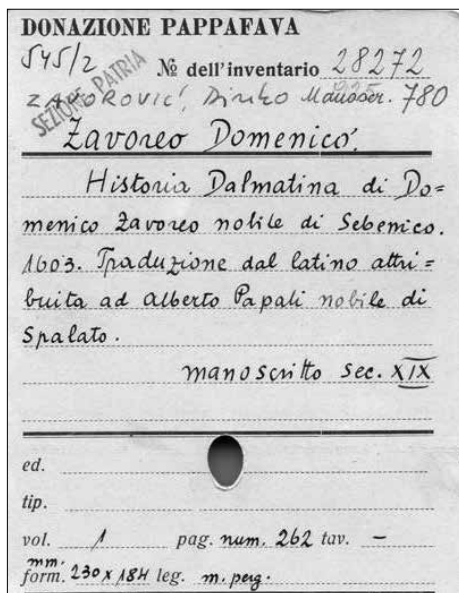 DONAZIONE PAPPAFAVA
545/2 № dell'inventario 28272
SEZIONE PATRIA
ZAVOROVIĆ, Dinko Manoscr. 780
Zavoreo Domenico.
Historia Dalmatina di Do=
menico Zavoreo nobile di Sebenico.
1603. Traduzione dal latino attri=
buita ad Alberto Papali nobile di
Spalato.
manoscritto sec. XIX
ed.
tip.
vol. 1 pag. num. 262 tav. –
mm.
form. 230 x 184 leg. m. perg.